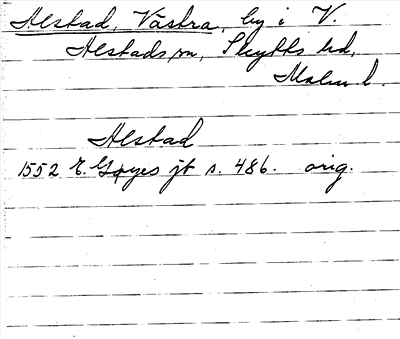 Alstad, Västra, by i V.
Alstads sn, Skytts hd,
Malm. l.
Alstad
1552 E. Gøyes jb s. 486. orig.